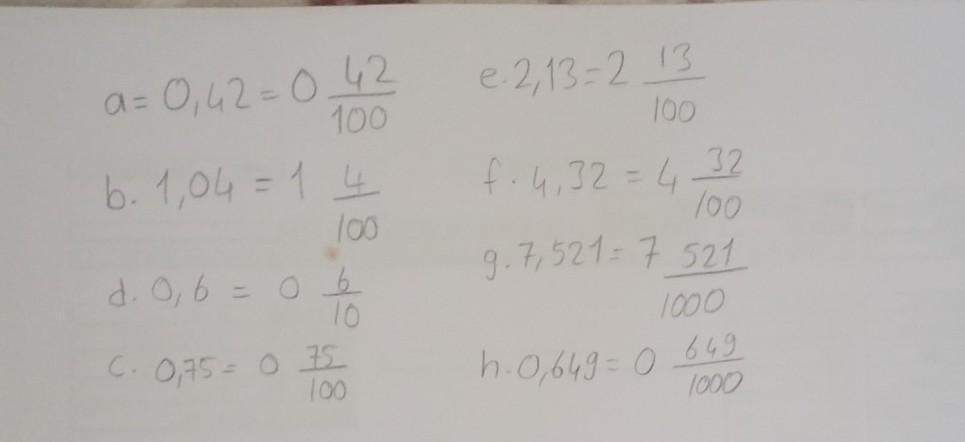 a= 0,42 = 0 42/100
b. 1,04 = 1 4/100
d. 0,6 = 0 6/10
c. 0,75 = 0 75/100
e. 2,13 = 2 13/100
f. 4,32 = 4 32/100
g. 7,521 = 7 521/1000
h. 0,649 = 0 649/1000